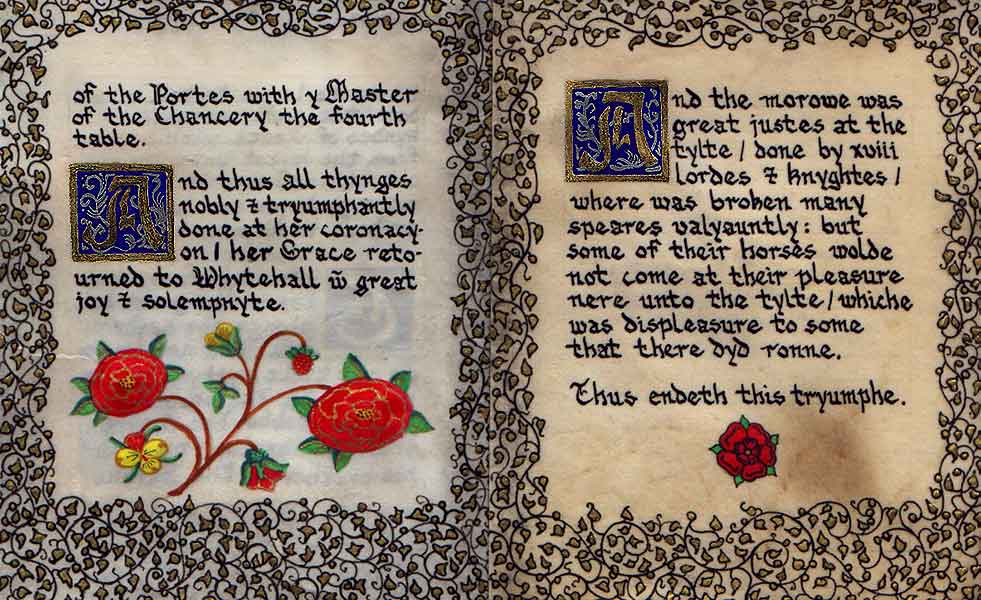 of the Portes with y Master
of the Chancery the fourth
table.
And thus all thynges
nobly & tryumphantly
done at her coronacy-
on / her Grace reto-
urned to Whytehall w̃ great
joy & solempnyte.
And the morowe was
great justes at the
tylte / done by xviii
lordes & knyghtes /
where was broken many
speares valyauntly: but
some of their horses wolde
not come at their pleasure
nere unto the tylte / whiche
was displeasure to some
that there dyd ronne.
Thus endeth this tryumphe.